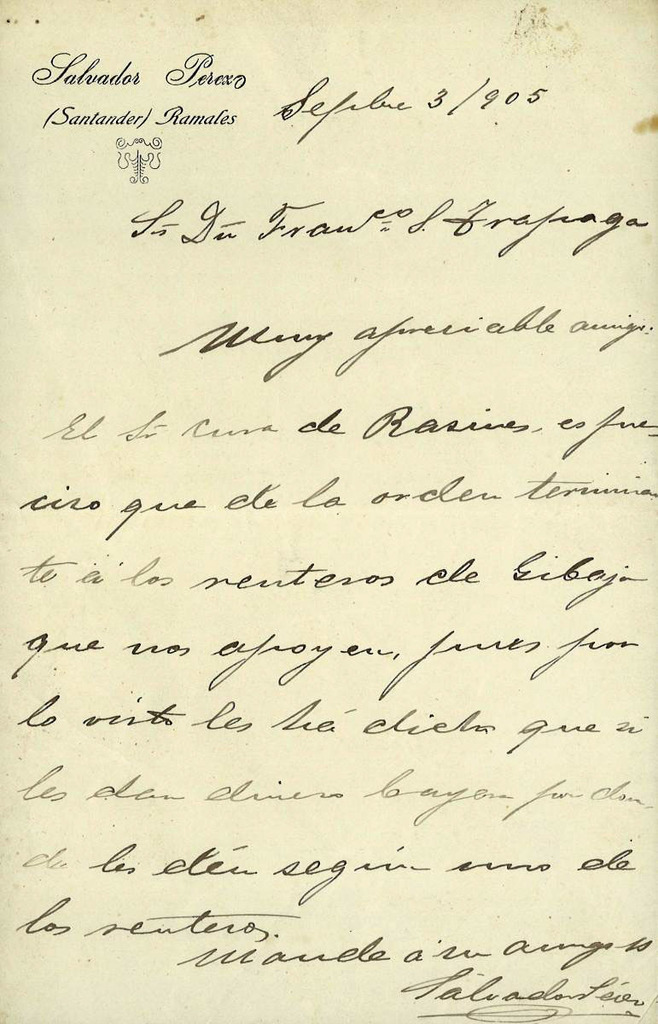 Salvador Perez
(Santander) Ramales
Sepbre 3/905
Sr Dn Franco S. Trapaga
Muy apreciable amigo:
El Sr cura de Rasines, es pre-
ciso que de la orden terminan
te á los renteros de Gibaja
que nos apoyen, pues por
lo visto les há dicho que si
les dan dinero bayan por don-
de les dén según uno de
los renteros.
Mande á su amigo
Salvador Pérez